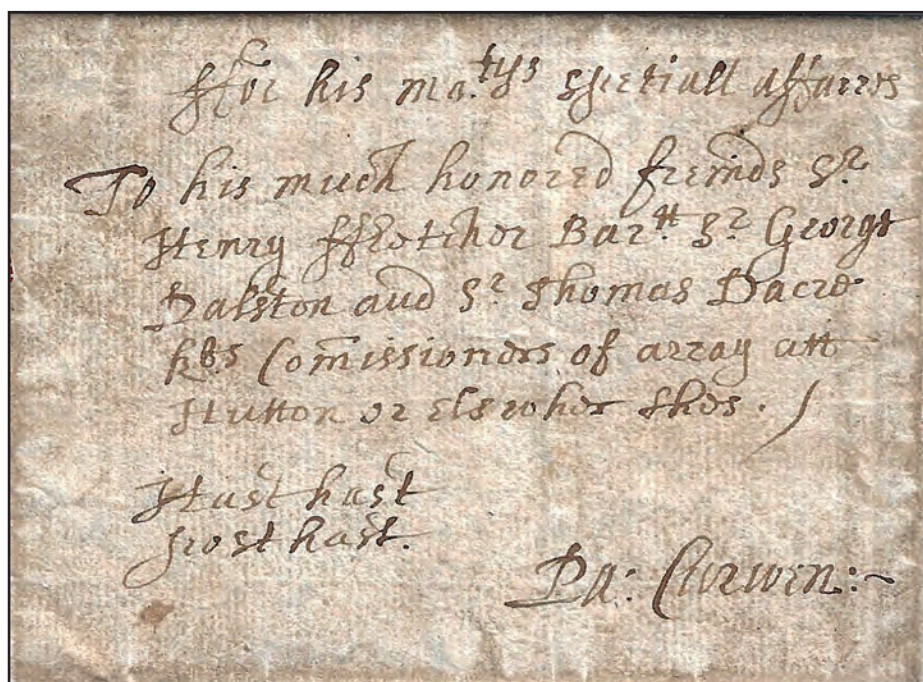 ffor his ma.tys spetiall affaires
To his much honored freinds Sr
Henry ffletcher Bartt Sr George
Dalston and Sr Thomas Dacre
kts Comissioners of array att
Hutton or elswher thes.
Hast hast
post hast.
Pa: Curwen:~